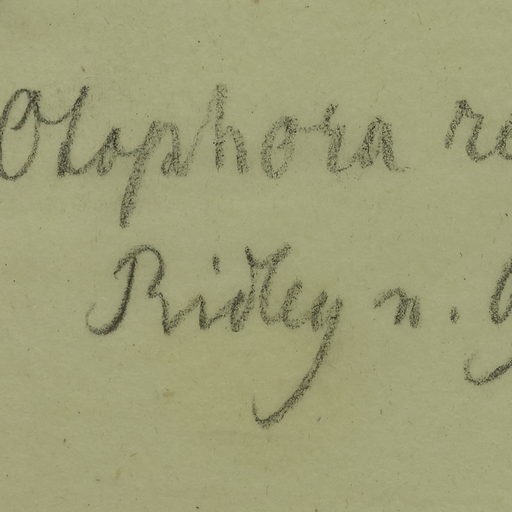 Olophora re
Ridley n. g